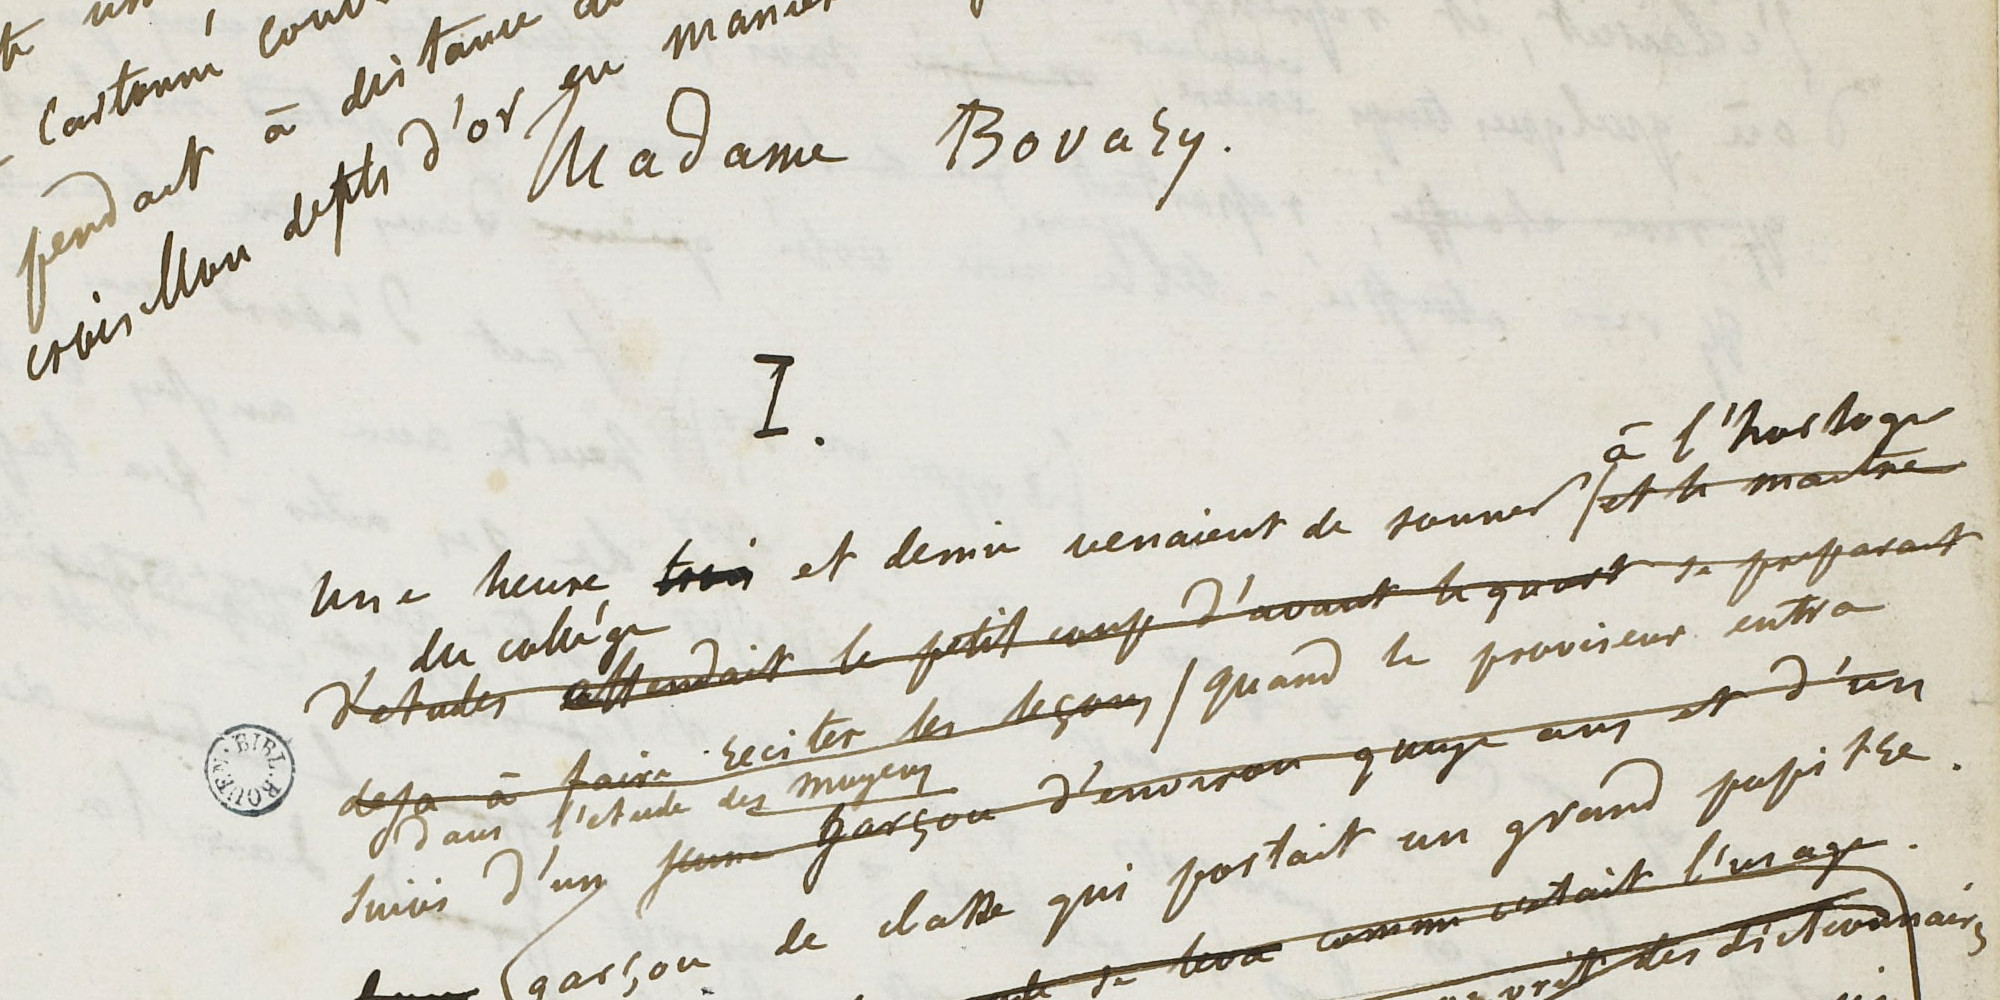 cartonné
pendant à distance
croisillon depts d'or en
Madame Bovary.
I.
à l'horloge
Une heure trois et demie venaient de sonner et le maître
du collége
d'etudes attendait le petit coup d'avant le quart se preparait
deja à faire reciter les leçons quand le proviseur entra
dans l'etude des moyens
suivi d'un jeune garçon d'environ quinze ans et d'un
garçon de classe qui portait un grand pupitre.
se leva comme c'etait l'usage.
des dictionnaires
BIBL. ROUEN